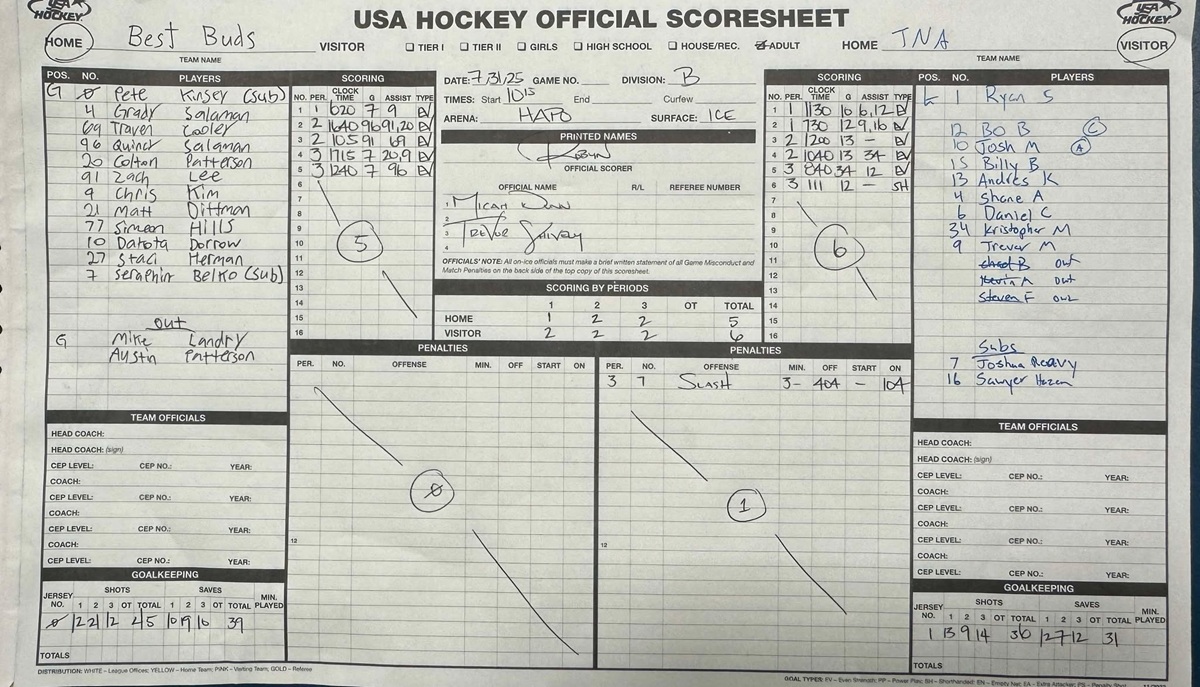 USA HOCKEY
USA HOCKEY OFFICIAL SCORESHEET
USA HOCKEY
HOME Best Buds VISITOR ☐ TIER I ☐ TIER II ☐ GIRLS ☐ HIGH SCHOOL ☐ HOUSE/REC. ☒ ADULT HOME TNA VISITOR
TEAM NAME TEAM NAME
POS. NO. PLAYERS
G 0 Pete Kinsey (sub)
4 Grady Salaman
69 Traven Cooley
96 Quincy Salaman
20 Colton Patterson
91 Zach Lee
9 Chris Kim
21 Matt Dittman
77 Simeon Hills
10 Dakota Dorrow
27 Staci Herman
7 Seraphin Belko (sub)
out
G Mike Landry
Austin Patterson
SCORING
NO. PER. CLOCK TIME G ASSIST TYPE
1 1 620 7 9 EV
2 2 1640 96 91,20 EV
3 2 105 91 69 EV
4 3 1715 7 20,9 EV
5 3 1240 7 96 EV
6
7
8
9
10
11
12
13
14
15
16
5
DATE: 7/31/25 GAME NO. DIVISION: B
TIMES: Start 1015 End Curfew
ARENA: HAPO SURFACE: ICE
PRINTED NAMES
Robyn
OFFICIAL SCORER
OFFICIAL NAME R/L REFEREE NUMBER
1 Micah Dunn
2
3 Trevor Shively
4
OFFICIALS' NOTE: All on-ice officials must make a brief written statement of all Game Misconduct and
Match Penalties on the back side of the top copy of this scoresheet.
SCORING BY PERIODS
1 2 3 OT TOTAL
HOME 1 2 2 5
VISITOR 2 2 2 6
SCORING
NO. PER. CLOCK TIME G ASSIST TYPE
1 1 1130 10 6,12 EV
2 1 730 12 9,16 EV
3 2 1200 13 - EV
4 2 1040 13 34 EV
5 3 840 34 12 EV
6 3 111 12 - SH
7
8
9
10
11
12
13
14
15
16
6
POS. NO. PLAYERS
G 1 Ryan S
12 Bo B C
10 Josh M A
15 Billy B
13 Andres K
4 Shane A
6 Daniel C
34 Kristopher M
9 Trevor M
B out
Kevin A out
Steven F out
Subs
7 Joshua Reavy
16 Sawyer Hazen
PENALTIES
PER. NO. OFFENSE MIN. OFF START ON
0
12
PENALTIES
PER. NO. OFFENSE MIN. OFF START ON
3 7 Slash 3- 404 - 104
1
12
TEAM OFFICIALS
HEAD COACH:
HEAD COACH: (sign)
CEP LEVEL: CEP NO.: YEAR:
COACH:
CEP LEVEL: CEP NO.: YEAR:
COACH:
CEP LEVEL: CEP NO.: YEAR:
COACH:
CEP LEVEL: CEP NO.: YEAR:
GOALKEEPING
JERSEY NO. SHOTS SAVES MIN. PLAYED
1 2 3 OT TOTAL 1 2 3 OT TOTAL
0 12 21 12 45 10 19 10 39
TOTALS
TEAM OFFICIALS
HEAD COACH:
HEAD COACH: (sign)
CEP LEVEL: CEP NO.: YEAR:
COACH:
CEP LEVEL: CEP NO.: YEAR:
COACH:
CEP LEVEL: CEP NO.: YEAR:
COACH:
CEP LEVEL: CEP NO.: YEAR:
GOALKEEPING
JERSEY NO. SHOTS SAVES MIN. PLAYED
1 2 3 OT TOTAL 1 2 3 OT TOTAL
1 13 9 14 36 12 7 12 31
TOTALS
DISTRIBUTION: WHITE – League Offices; YELLOW – Home Team; PINK – Visiting Team; GOLD – Referee
GOAL TYPES: EV – Even Strength; PP – Power Play; SH – Shorthanded; EN – Empty Net; EA – Extra Attacker; PS – Penalty Shot